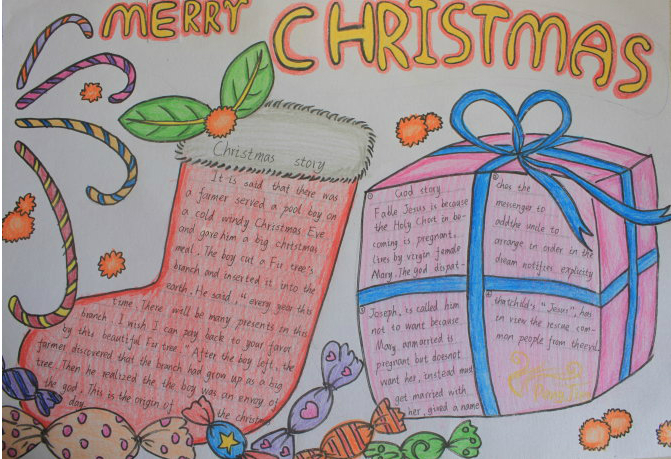 MERRY CHRISTMAS
Christmas story
It is said that there was
a farmer served a pool boy on
a cold windy Christmas Eve
and gave him a big christmas
meal. The boy cut a Fir tree's
branch and inserted it into the
earth. He said, "every year this
time. There will be many presents in this
branch. I wish I can pay back to your favor
by this beautiful Fir tree." After the boy left, the
farmer discovered that the branch had grow up as a big
tree. Then he realized the the boy was an envoy of
the god. This is the origin of the christmas
day
① God story
Fable Jesus is because
the Holy Ghost in be-
coming is pregnant.
lives by virgin female
Mary. The god dispat-
② ches the
messenger to
addshe uncle to
arrange in order in the
dream notifies explicity
③ Joseph, is called him
not to want because
Mary unmarried is
pregnant but doesnot
want her, instead must
get married with
her, gived a name
④ thatchild's "Jesus", has
in view the rescue com-
mon people from theevil